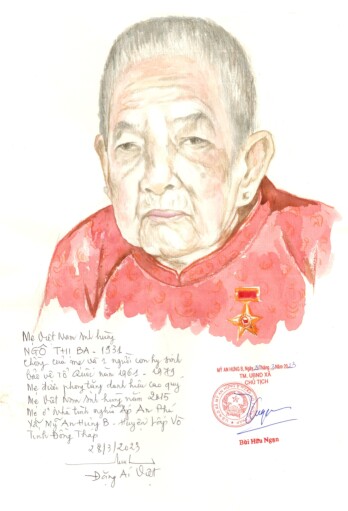 Mẹ Việt Nam anh hùng
NGÔ THỊ BA - 1931
Chồng của mẹ và 1 người con hy sinh
bảo vệ Tổ Quốc năm 1961 - 1979
Mẹ được phong tặng danh hiệu cao quý
Mẹ Việt Nam anh hùng năm 2015
Mẹ ở nhà tình nghĩa ấp An Phú
Xã Mỹ An Hưng B - Huyện Lấp Vò
Tỉnh Đồng Tháp
28/3/2023
Đặng Ái Việt
MỸ AN HƯNG B, Ngày tháng 3 năm 2023
TM. UBND XÃ
CHỦ TỊCH
Bùi Hữu Ngạn